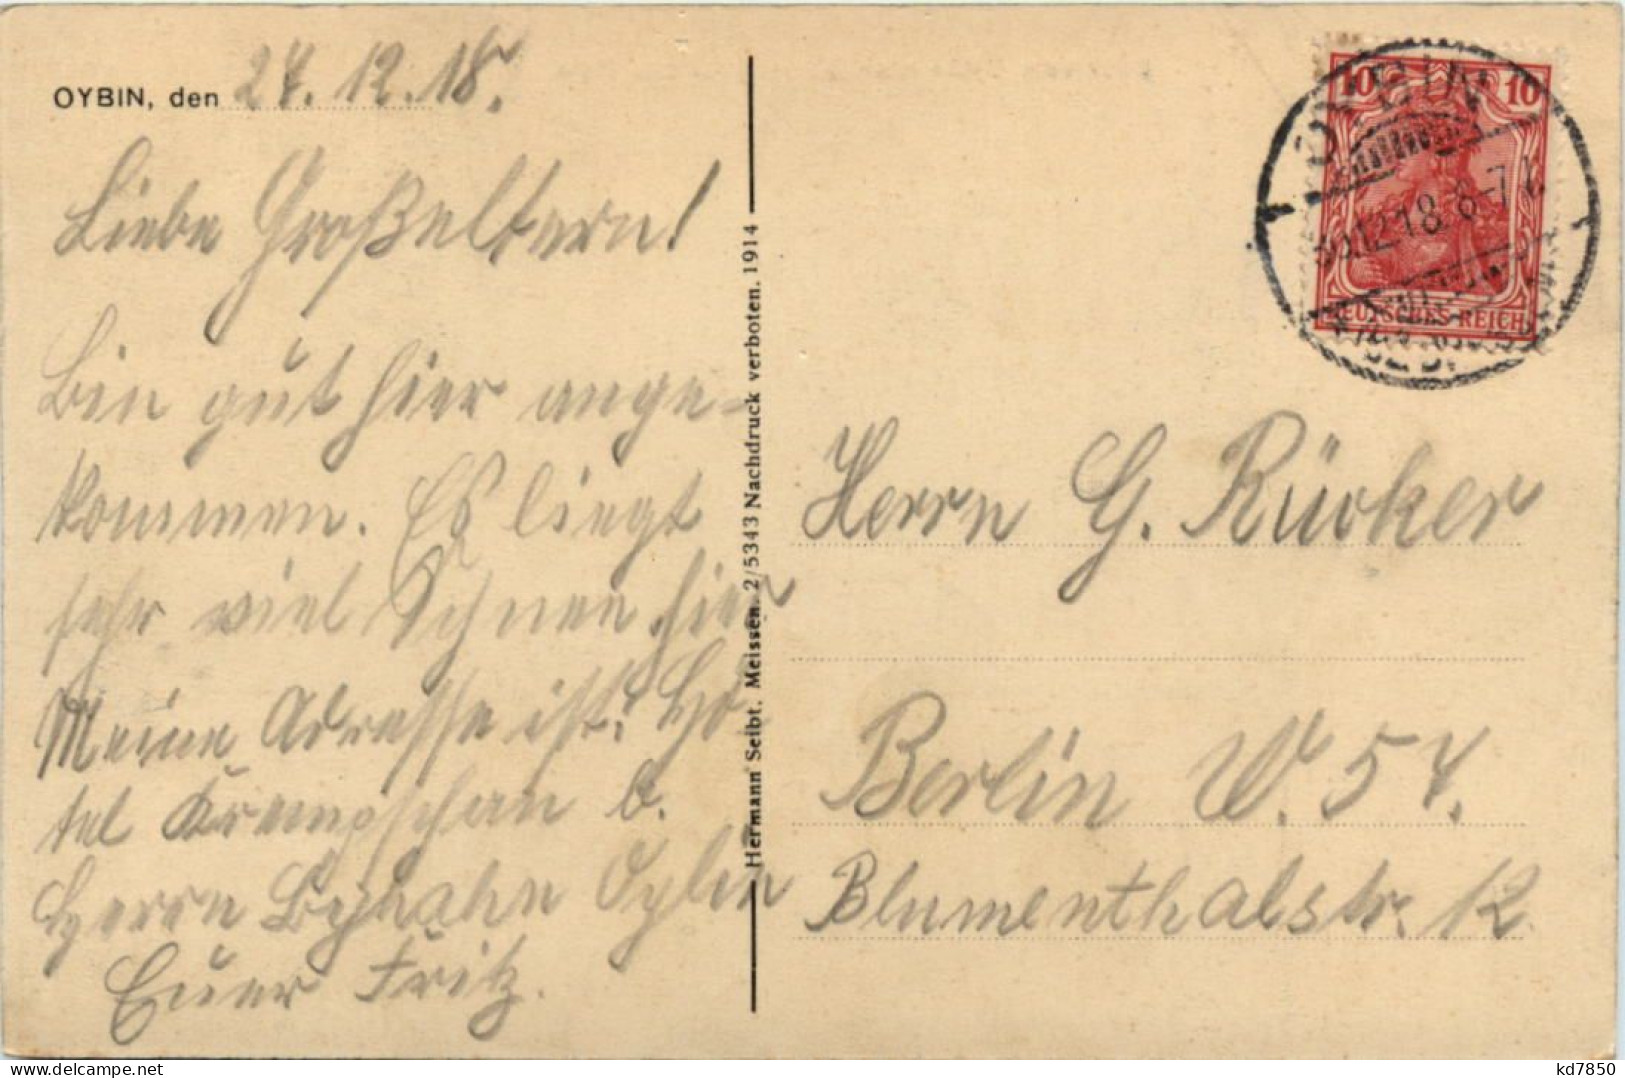 OYBIN, den 27.12.18.
Liebe Großeltern!
Bin gut hier ange-
kommen. Es liegt
sehr viel Schnee hier
Meine Adresse ist: Ho-
tel b.
Herrn Oybin
Euer Fritz.
Hermann Seibt, Meissen. 2/5343 Nachdruck verboten. 1914
10 10
DEUTSCHES REICH
OYBIN
30.12.18. 6-7 N.
Herrn G. Rücker
Berlin W. 57.
Blumenthalstr. 12.
delcampe.net
kd7850